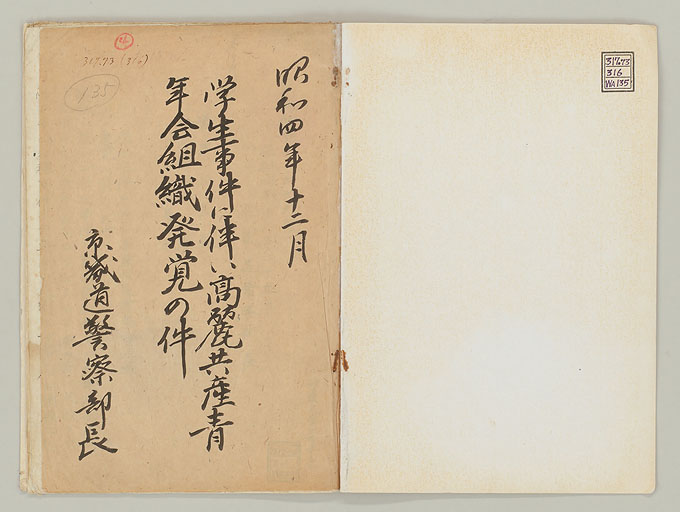 昭和四年十二月
学生事件に伴い高麗共産青
年会組織発覚の件
京城道警察部長
317.73(316)
135
317.73
316
WA135